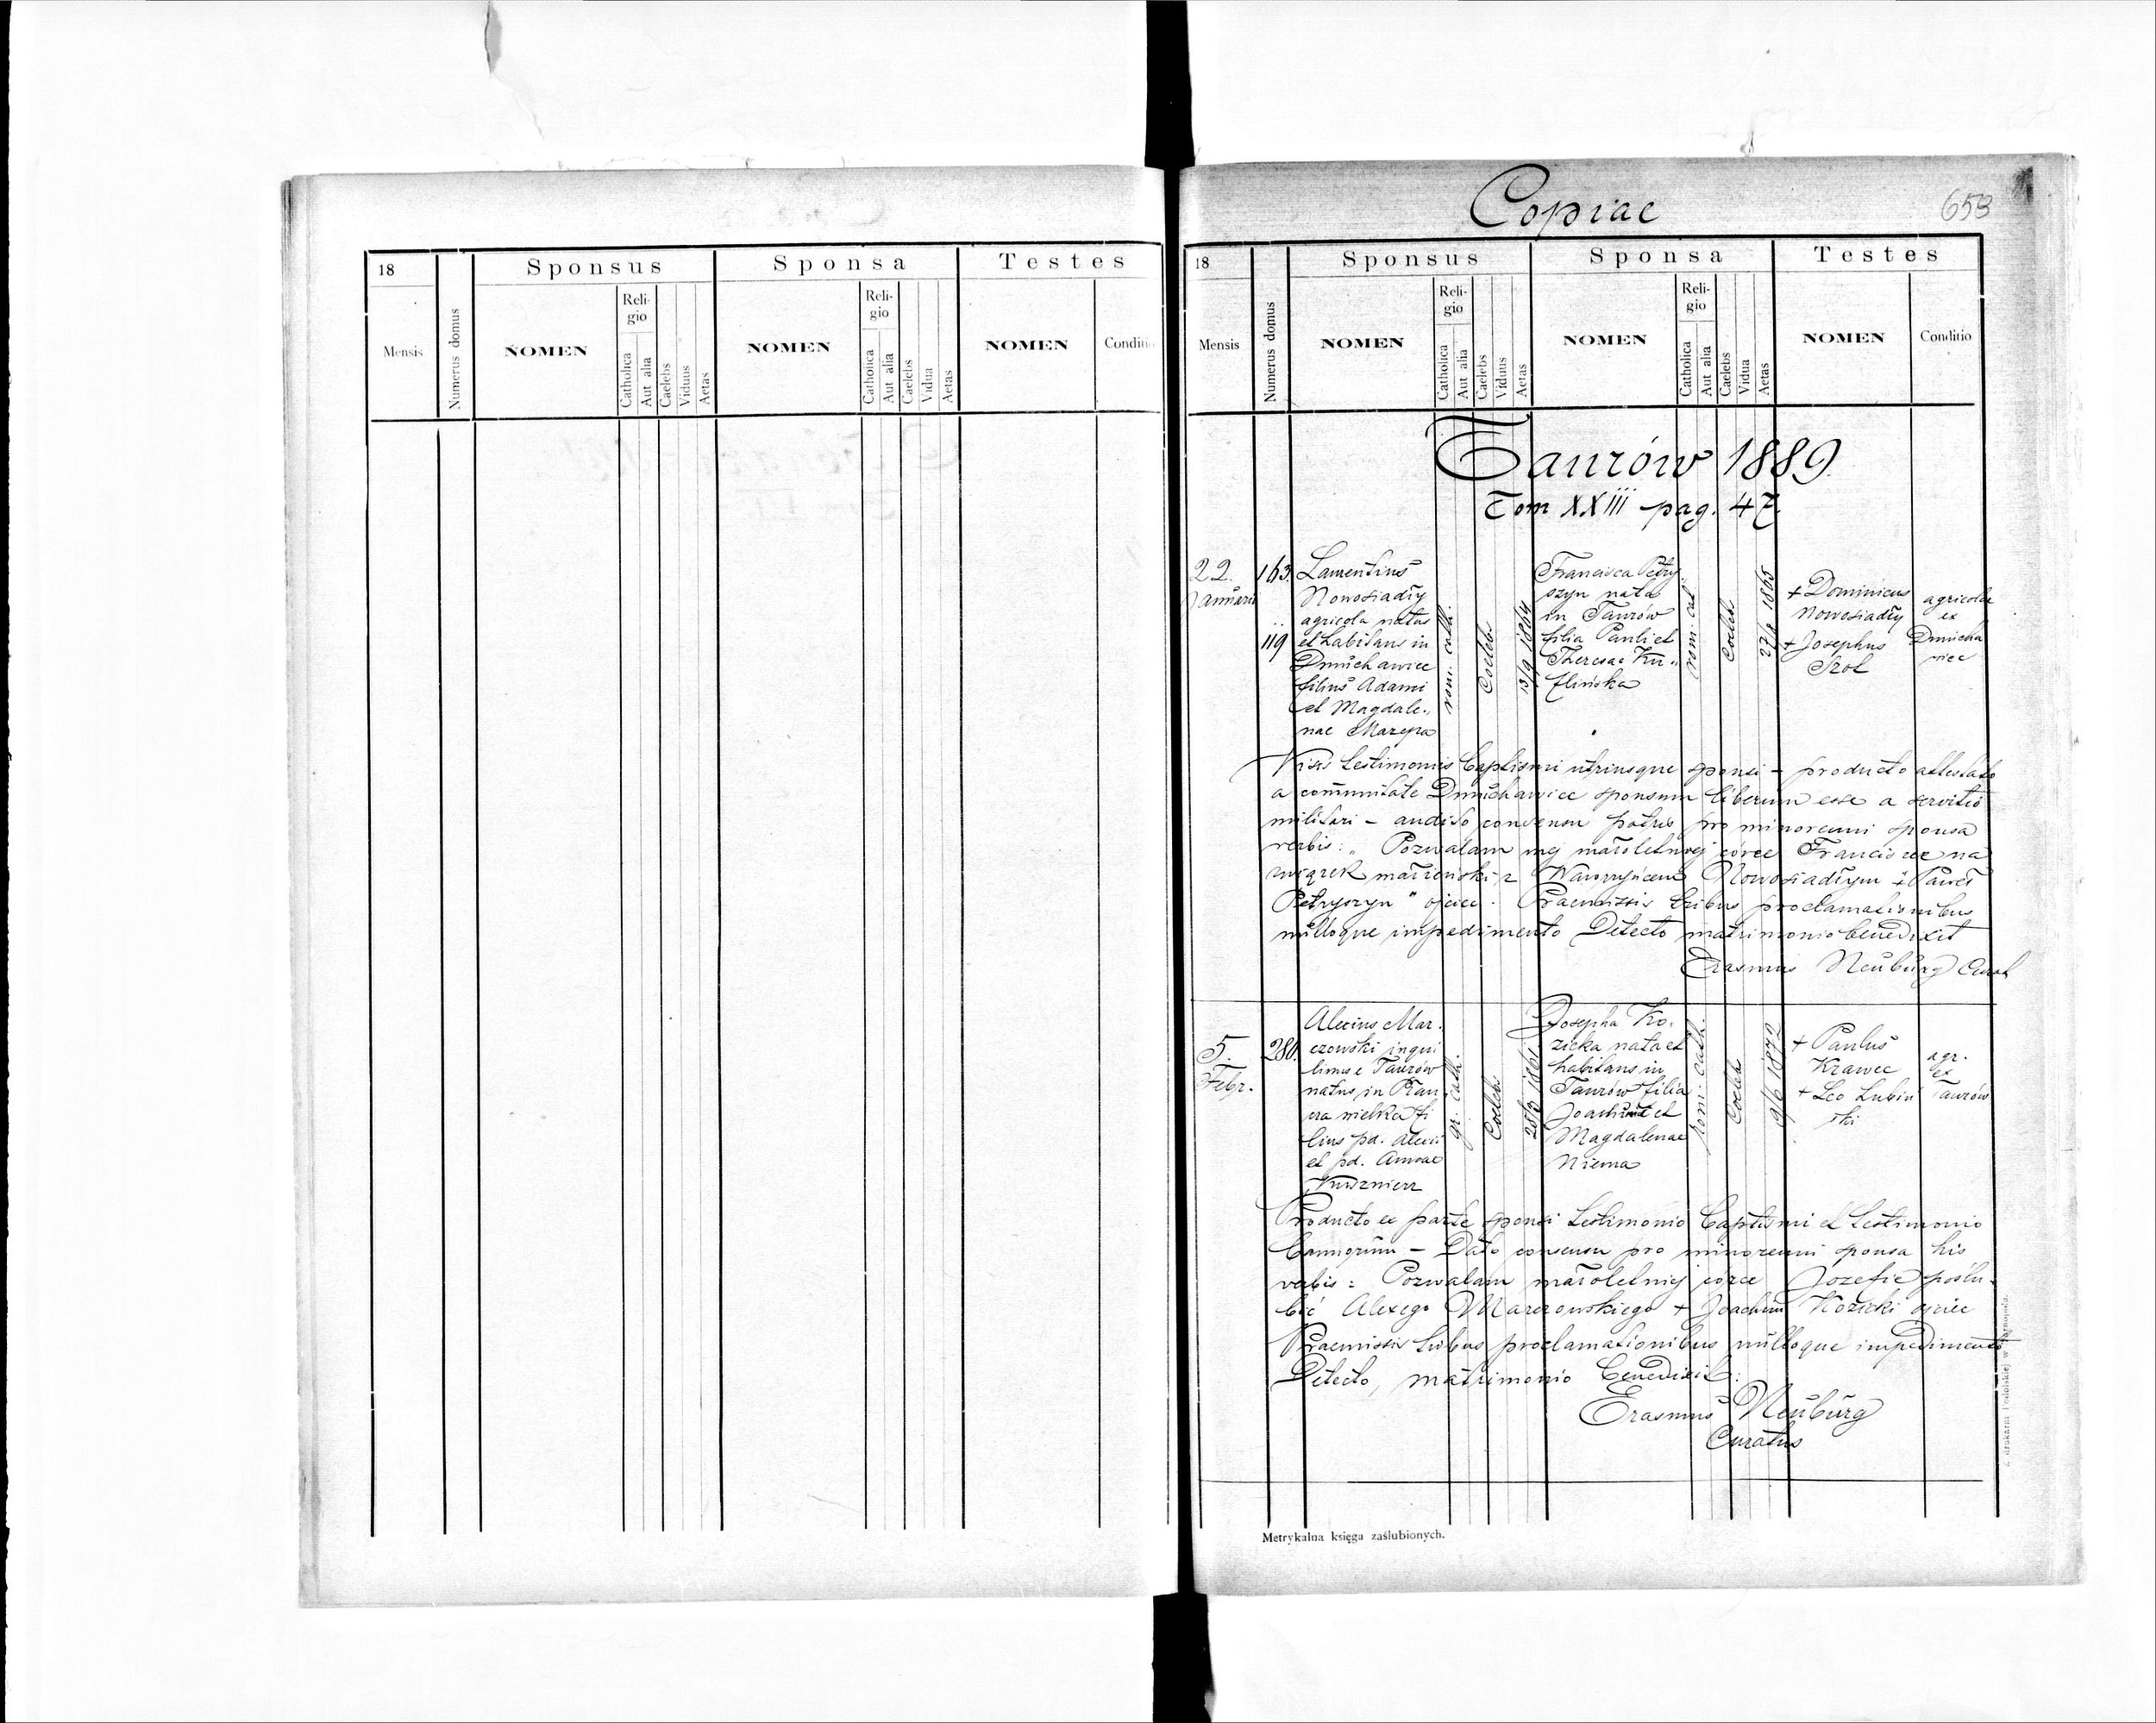 18
Sponsus
Sponsa
Testes
Mensis
Numerus domus
NOMEN
Reli-
gio
Catholica
Aut alia
Caelebs
Viduus
Aetas
NOMEN
Reli-
gio
Catholica
Aut alia
Caelebs
Vidua
Aetas
NOMEN
Conditio
Copiae
653
18
Sponsus
Sponsa
Testes
Mensis
Numerus domus
NOMEN
Reli-
gio
Catholica
Aut alia
Caelebs
Viduus
Aetas
NOMEN
Reli-
gio
Catholica
Aut alia
Caelebs
Vidua
Aetas
NOMEN
Conditio
Taurów 1889
Tom XXIII pag. 47
22.
Januarii
163.
119
Laurentius
Nowosiadły
agricola natus
et habitans in
Dmuchawiec
filius Adami
et Magdale-
nae Mazepa
rom. cath.
Coelebs
13/9 1864
Francisca Petry
szyn nata
in Taurów
filia Pauli et
Theresae Ku-
flińska
rom. cat
Coelebs
27/8 1865
+ Dominicus
Nowosiadły
+ Josephus
Szot
agricolae
ex
Dmucha
wiec
Visis testimoniis baptismi utriusque sponsi - producto attestato
a communitate Dmuchawiec sponsum liberum esse a servitio
militari - audito consensu patris pro minorenni sponsa
verbis: „Pozwalam mej małoletniej córce Franciszce na
związek małżeński z Wawrzyńcem Nowosiadłym + Paweł
Petryszyn" ojciec. Praemissis tribus proclamationibus
nulloque impedimento detecto matrimonio benedixit
Erasmus Neuburg Curat
5.
Febr.
280.
Alexius Mar-
czowski inqui
linus e Taurów
natus in
wielka fi
lius pd. Alexii
et pd. Annae
Kusznierz
gr. cath.
Coelebs
28/3 1861
Josepha Ko-
zicka nata et
habitans in
Taurów filia
Joachimi et
Magdalenae
Niema
rom. cath.
Coelebs
9/6 1872
+ Paulus
Krawec
+ Leo Lubiń
ski
agr.
ex
Taurów
Producto ex parte sponsi testimonio baptismi et testimonio
bannorum - Dato consensu pro minorenni sponsa his
verbis: Pozwalam małoletniej córce Józefie poślu-
bić Alexego Marczowskiego + Joachim Kozicki ojciec
Praemissis tribus proclamationibus nulloque impedimento
detecto, matrimonio benedixit:
Erasmus Neuburg
Curatus
Metrykalna księga zaślubionych.
Z drukarni Podolskiej w Tarnopolu.